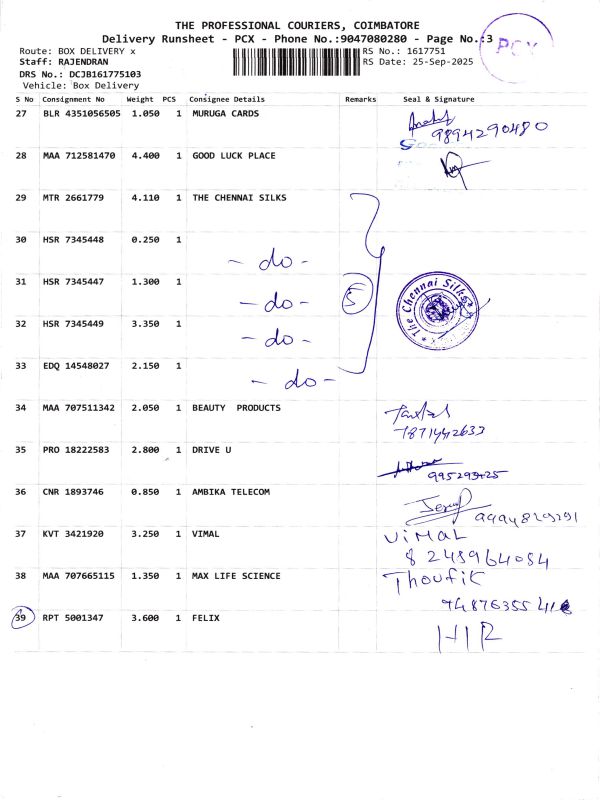 THE PROFESSIONAL COURIERS, COIMBATORE
Delivery Runsheet - PCX - Phone No.:9047080280 - Page No.:3
PCX
Route: BOX DELIVERY x
RS No.: 1617751
Staff: RAJENDRAN
RS Date: 25-Sep-2025
DRS No.: DCJB161775103
Vehicle: Box Delivery
S No Consignment No Weight PCS Consignee Details Remarks Seal & Signature
27 BLR 4351056505 1.050 1 MURUGA CARDS
9894290480
28 MAA 712581470 4.400 1 GOOD LUCK PLACE
29 MTR 2661779 4.110 1 THE CHENNAI SILKS
30 HSR 7345448 0.250 1
- do -
31 HSR 7345447 1.300 1
- do - 5 The Chennai Silks
32 HSR 7345449 3.350 1
- do -
33 EDQ 14548027 2.150 1
- do -
34 MAA 707511342 2.050 1 BEAUTY PRODUCTS
7871442633
35 PRO 18222583 2.800 1 DRIVE U
36 CNR 1893746 0.850 1 AMBIKA TELECOM
37 KVT 3421920 3.250 1 VIMAL
ViMAL
8248964084
38 MAA 707665115 1.350 1 MAX LIFE SCIENCE
Thoufik
39 RPT 5001347 3.600 1 FELIX